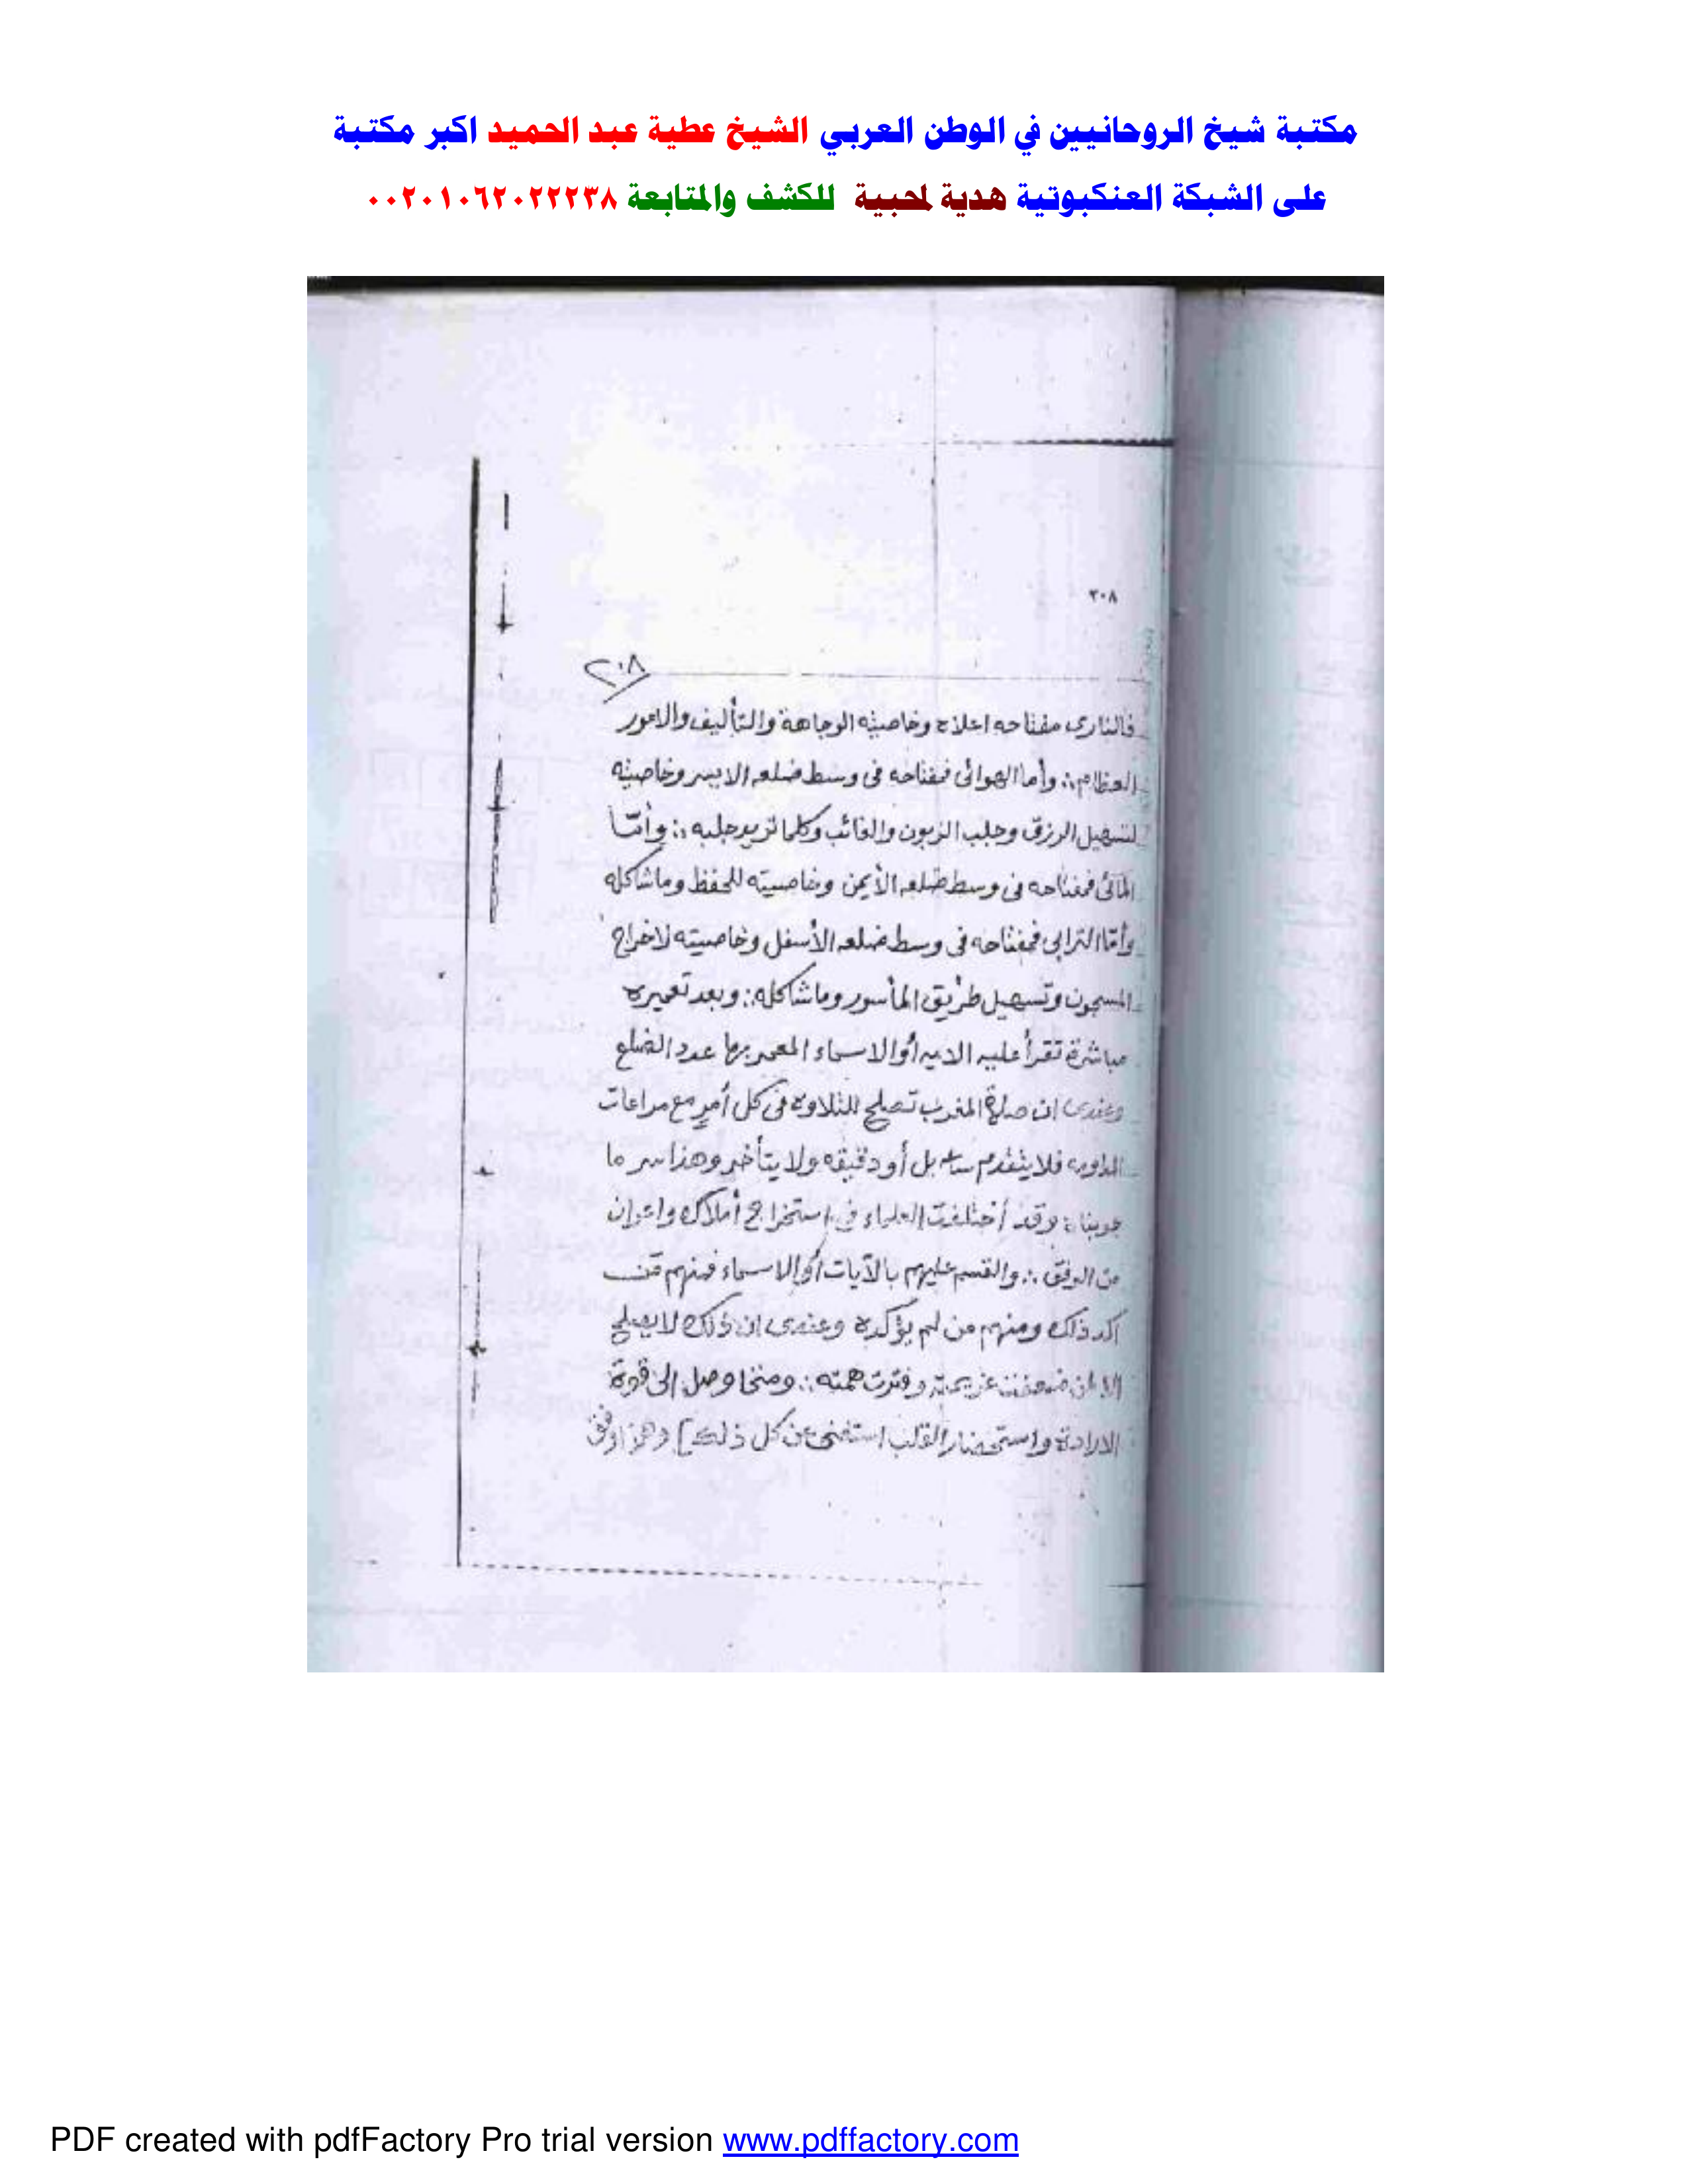 مكتبة شيخ الروحانيين في الوطن العربي الشيخ عطية عبد الحميد اكبر مكتبة
على الشبكة العنكبوتية هدية لمحبية للكشف والمتابعة ٠٠٢٠١٠٦٢٠٢٢٢٣٨
٢٠٨
٢٠٨
فالنارى مفتاحه اعلاه وخاصيته الوجاهة والتأليف والامور
العظام ∴ وأما الهوائى فمفتاحه فى وسط ضلعه الايسر وخاصيته
لتسهيل الرزق وجلب الزبون والغائب وكلما تريد جلبه ∴ وأمّا
المائى فمفتاحه فى وسط ضلعه الأيمن وخاصيته للحفظ وماشاكله
وأمّا الترابى فمفتاحه فى وسط ضلعه الأسفل وخاصيته لاخراج
المسجون وتسهيل طريق المأسور وماشاكله ∴ وبعد تعميره
مباشرة تقرأ عليه الايه أو الاسماء المعمر بها عدد الضلع
وعندى ان صلاة المغرب تصلح للتلاوه فى كل أمر مع مراعات
فلا يتقدم بل أو دقيقه ولا يتأخر وهذا سر ما
جربناه وقد أختلفت العلماء فى إستخراج أملاك واعوان
من الوفق ∴ والقسم عليهم بالآيات أو الاسماء فمنهم من
اكد ذلك ومنهم من لم يؤكده وعندى ان ذلك لا يصلح
الا لمن ضعفت عزيمته وفترت همته ∴ وصل الى قوة
الارادة واستحضار القلب استغنى عن كل ذلك] وهذا وفق
PDF created with pdfFactory Pro trial version www.pdffactory.com